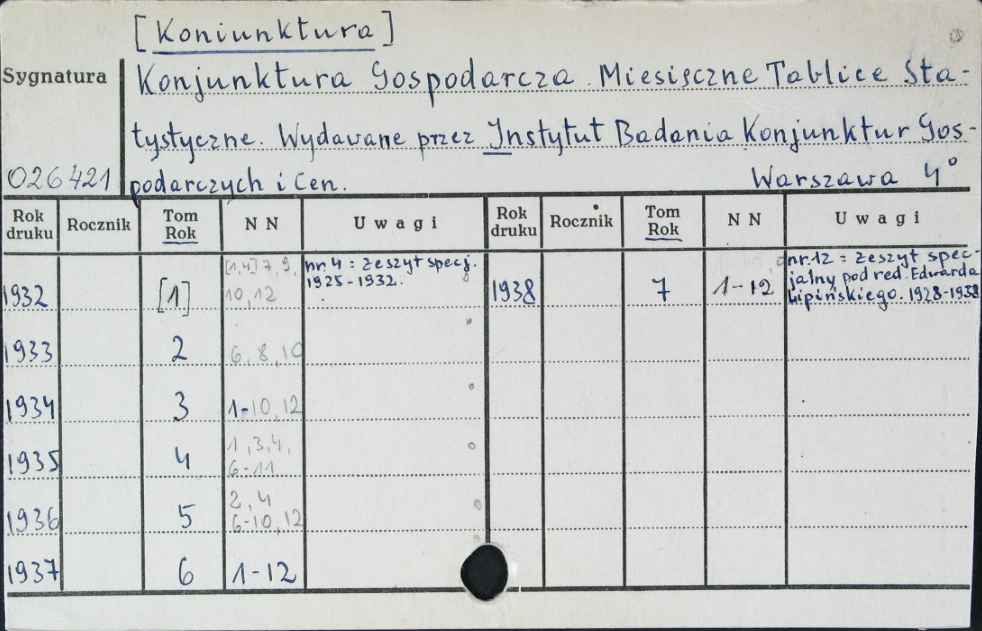 [Koniunktura]
Sygnatura
Konjunktura Gospodarcza. Miesięczne Tablice Sta-
tystyczne. Wydawane przez Instytut Badania Konjunktur Gos-
026421 podarczych i Cen. Warszawa 4°
Rok druku Rocznik Tom Rok NN Uwagi Rok druku Rocznik Tom Rok NN Uwagi
1932 [1] [1,4] 7, 9, 10, 12 nr 4 : zeszyt specj. 1925-1932. 1938 7 1-12 nr 12 = zeszyt specjalny pod red. Edwarda Lipińskiego. 1928-1938
1933 2 6, 8, 10
1934 3 1-10, 12
1935 4 1, 3, 4, 6-11
1936 5 2, 4 6-10, 12
1937 6 1-12